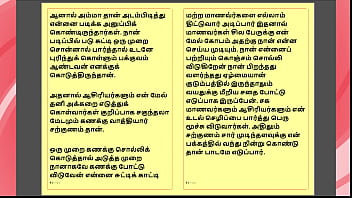 ஆனால் அம்மா தான் அடம்பிடித்து
என்னை படிக்க அனுப்பிக்
கொண்டிருந்தார்கள். நான்
படிப்பில் படு சுட்டி ஒரு முறை
சொன்னால் பார்த்தால் உடனே
புரிந்துக் கொள்ளும் பக்குவம்
ஆண்டவன் எனக்குக்
கொடுத்திருந்தான்.
அதனால் ஆசிரியர்களும் என் மேல்
தனி அக்கறை எடுத்துக்
கொள்வார்கள் குறிப்பாக சகுந்தலா
மேடமும் கணக்கு வாத்தியார்
சற்குணம் தான்.
ஒரு முறை கணக்கு சொல்லிக்
கொடுத்தால் அடுத்த முறை
நானாகவே கணக்கு போட்டு
விடுவேன் என்னை சுட்டிக் காட்டி
மற்ற மாணவர்களை எல்லாம்
திட்டுவார் அடிப்பார் இதனால்
மாணவர்கள் சில பேருக்கு என்
மேல் கோபம் அதற்கு நான் என்ன
செய்ய முடியும். நான் என்னைப்
பற்றியும் கொஞ்சம் சொல்லி
விடுகிறேன் நான் பிறந்தது
வளர்ந்தது ஏழ்மையான
குடும்பத்தில் இருந்தாலும்
வயதுக்கு மீறிய சதை போட்டு
எடுப்பாக இருப்பேன். சக
மாணவர்களும் ஆசிரியர்களும் என்
உடல் செழிப்பை பார்த்து பெரு
மூச்சு விடுவார்கள். அதிதும்
சற்குணம் சார் முடிந்தளவுக்கு என்
பக்கத்தில் வந்து நின்று கொண்டு
தான் பாடமே எடுப்பார்.